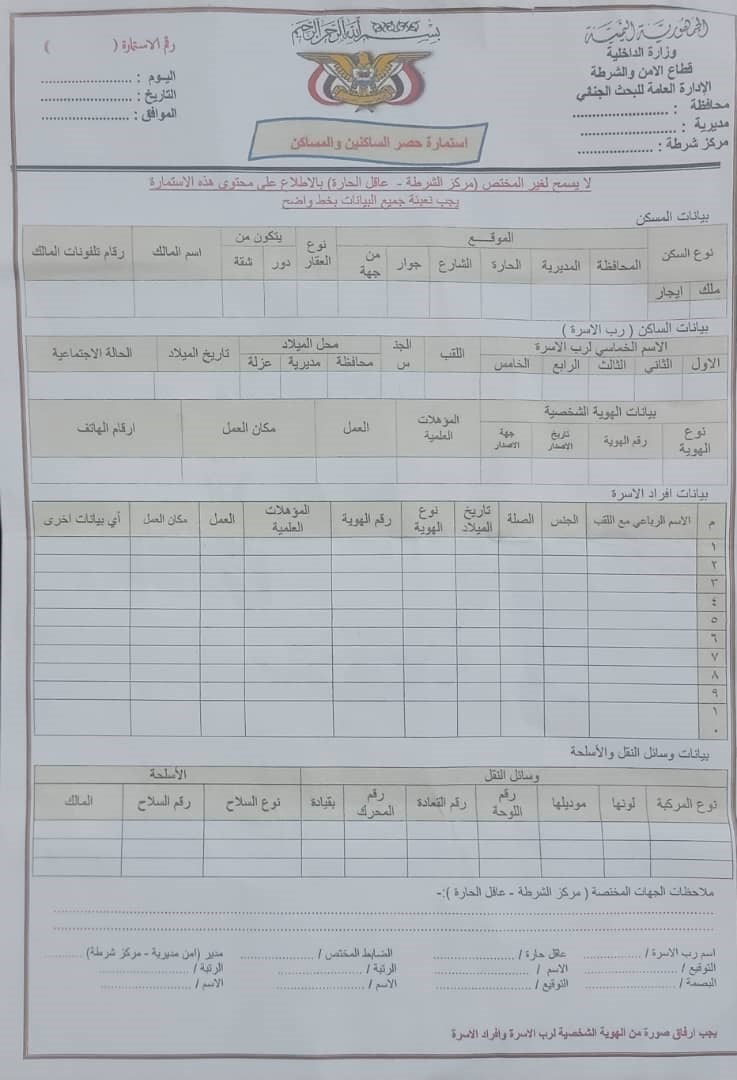 الجمهورية اليمنية
وزارة الداخلية
قطاع الامن والشرطة
الإدارة العامة للبحث الجنائي
محافظة : ........................
مديرية : ........................
مركز شرطة : ...................
بسم الله الرحمن الرحيم
استمارة حصر الساكنين والمساكن
رقم الاستمارة ( )
اليوم : ........................
التاريخ : ........................
الموافق : ........................
لا يسمح لغير المختص (مركز الشرطة - عاقل الحارة) بالاطلاع على محتوى هذه الاستمارة
يجب تعبئة جميع البيانات بخط واضح
بيانات المسكن
نوع السكن الموقـــع نوع العقار يتكون من اسم المالك رقام تلفونات المالك
المحافظة المديرية الحارة الشارع جوار من جهة دور شقة
ملك ايجار
بيانات الساكن ( رب الاسرة )
الاسم الخماسي لرب الاسرة اللقب الجنس محل الميلاد تاريخ الميلاد الحالة الاجتماعية
الاول الثاني الثالث الرابع الخامس محافظة مديرية عزلة
بيانات الهوية الشخصية المؤهلات العلمية العمل مكان العمل ارقام الهاتف
نوع الهوية رقم الهوية تاريخ الاصدار جهة الاصدار
بيانات افراد الاسرة
م الاسم الرباعي مع اللقب الجنس الصلة تاريخ الميلاد نوع الهوية رقم الهوية المؤهلات العلمية العمل مكان العمل أي بيانات اخرى
١
٢
٣
٤
٥
٦
٧
٨
٩
١٠
بيانات وسائل النقل والأسلحة
وسائل النقل الأسلحة
نوع المركبة لونها موديلها رقم اللوحة رقم القعادة رقم المحرك بقيادة نوع السلاح رقم السلاح المالك
ملاحظات الجهات المختصة ( مركز الشرطة - عاقل الحارة ):-
اسم رب الاسرة / .................. عاقل حارة / .................. الضابط المختص / .................. مدير (امن مديرية - مركز شرطة) ..........
التوقيع / .................. الاسم / .................. الرتبة / .................. الرتبة / ..................
البصمة / .................. التوقيع / .................. الاسم / .................. الاسم / ..................
يجب ارفاق صورة من الهوية الشخصية لرب الاسرة وافراد الاسرة